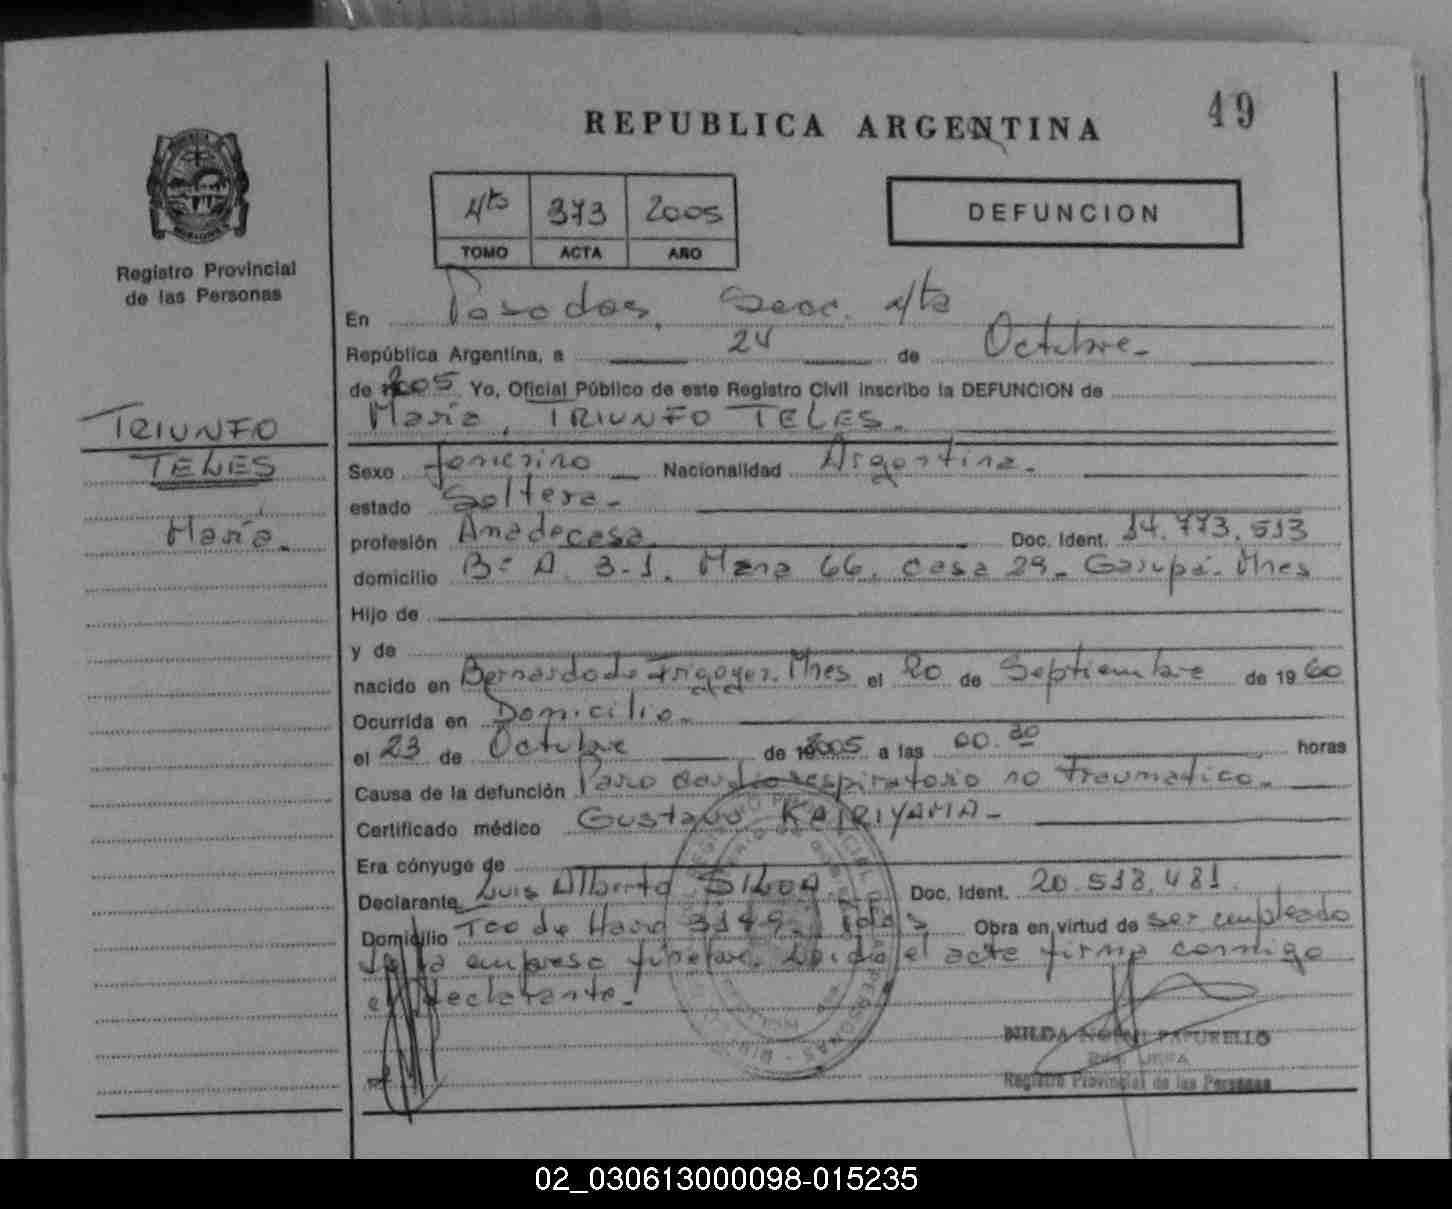 REPUBLICA ARGENTINA
49
4to 373 2005
TOMO ACTA AÑO
DEFUNCION
Registro Provincial
de las Personas
En Posadas, Secc. 4ta
República Argentina, a 24 de Octubre.
de 2005 Yo, Oficial Público de este Registro Civil inscribo la DEFUNCION de
María, TRIUNFO TELES.
TRIUNFO
TELES
María.
Sexo femenino Nacionalidad Argentina.
estado Soltera.
profesión Amadecasa Doc. Ident. 14.773.513
domicilio Bº A. 3-1. Mzna 66. casa 29. Garupá. Mnes
Hijo de
y de
nacido en Bernardo de Irigoyen. Mnes el 20 de Septiembre de 1960
Ocurrida en Domicilio.
el 23 de Octubre de 2005 a las 00.30 horas
Causa de la defunción Paro cardiorespiratorio no traumatico.
Certificado médico Gustavo KAIRIYAMA.
Era cónyuge de
Declarante Luis Alberto SILVA. Doc. Ident. 20.518.481.
Domicilio Tco de Haro 3149. Pdas Obra en virtud de ser empleado
de la empresa funebre. Leída el acta firma conmigo
el declarante.
PAPURELLO
Registro Provincial de las Personas
02_030613000098-015235